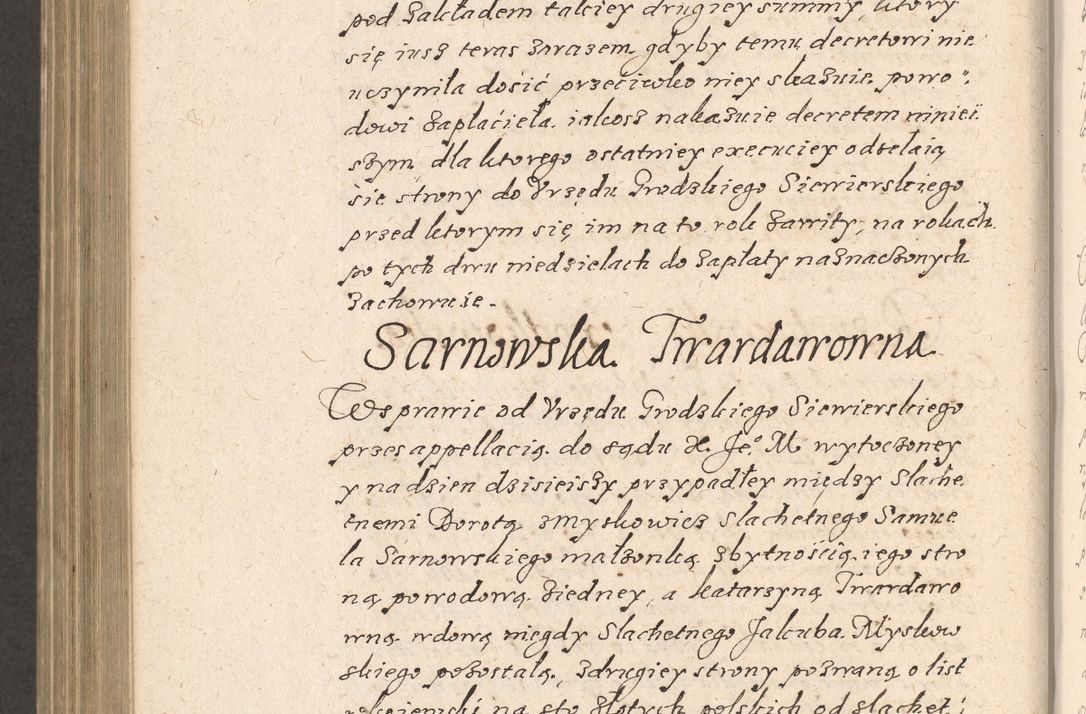 pod zakładem takiey drugiey summy, ktory
się iusz teras zarazem gdyby temu decretowi nie
uczyniła dosić przeciwko niey skazuie. powo„
dowi zapłaciela. iakosz nakazuie decretem niniei
szym, dla ktorego ostatniey execuciey odsełaią
sie strony do Vrzędu Grodzkiego Siewierskiego
przed ktorym się im na to rok zawity, na rokach
po tych dwu niedzielach do zapłaty naznaczonych
zachowuie.
Sarnowska. Twardawowna
Wsprawie od Vrzędu Grodzkiego Siewierskiego
przes appellacią. do sądu X. Je.º M wytoczoney
y na dzien dzisieiszy przypadłey między Slache
tnemi Dorotą zmyskowicz slachetnego Samue
la Sarnowskiego małzonką, zbytnością. iego stro
ną powodową. ziedney, a katarzyną Twardawo
wną. wdową niegdy Slachetnego Jakuba. Myskow
skiego pozostałą, zdrugiey strony pozwaną o list
na sto złotych polskich od slachet: